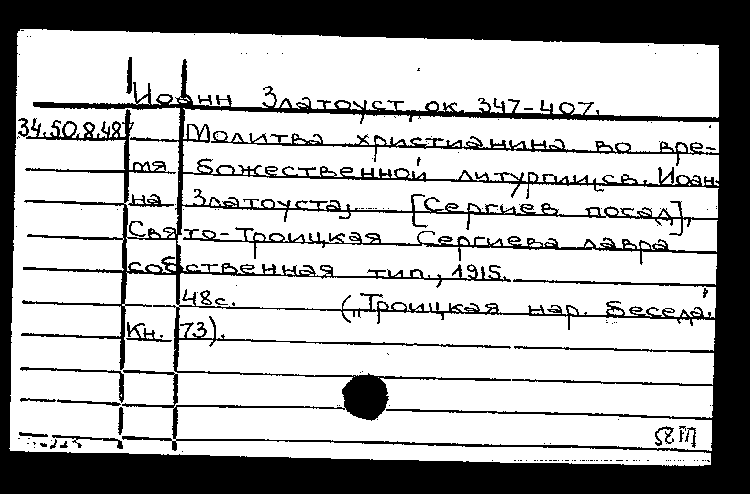 Иоанн Златоуст, ок. 347-407.
34.50.8.487 Молитва христианина во вре-
мя божественной литургии св. Иоан-
на Златоуста, [Сергиев посад],
Свято-Троицкая Сергиева лавра
собственная тип., 1915.
48с. („Троицкая нар. беседа.
Кн. 73).